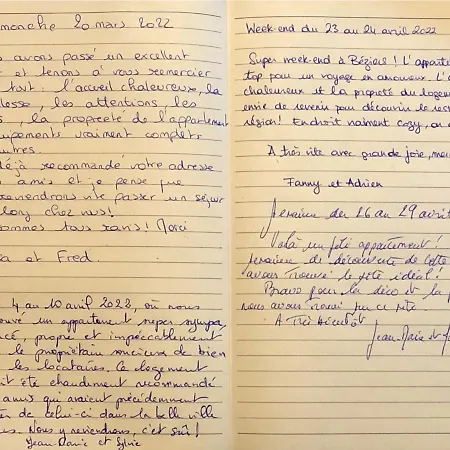 manche 20 mars 2022
avons passé un excellent
et tenons à vous remercier
tout : l'accueil chaleureux, la
les attentions, les
, la propreté de l'appartement
uipements vraiment complets
utres.
déjà recommandé votre adresse
amis et je pense que
reviendrons vite passer un séjour
long chez vous!
sommes tous ravis! Merci
et Fred.
4 au 10 avril 2022, où nous
ouvé un appartement super sympa,
cé, propre et impeccablement
le propriétaire soucieux de bien
les locataires. Ce logement
ait été chaudement recommandé
amis qui avaient précédemment
de celui-ci dans la belle ville
Nous y reviendrons, c'est sûr!
Jean-Marie et Sylvie
Week-end du 23 au 24 avril 2022
Super week-end à Béziers! L'apparte
top pour un voyage en amoureux. L'a
chaleureux et la propreté du logem
envie de revenir pour découvrir le
région! Endroit vraiment cosy, on
A très vite avec grande joie, mer
Fanny et Adrien
Semaine du 26 au 29 avril
Voilà un joli appartement!
semaine de découverte de cette
avons trouvé le gîte idéal!
Bravo pour la déco et la
nous avons par ce site.
A Très Bientôt
Jean-Marie et